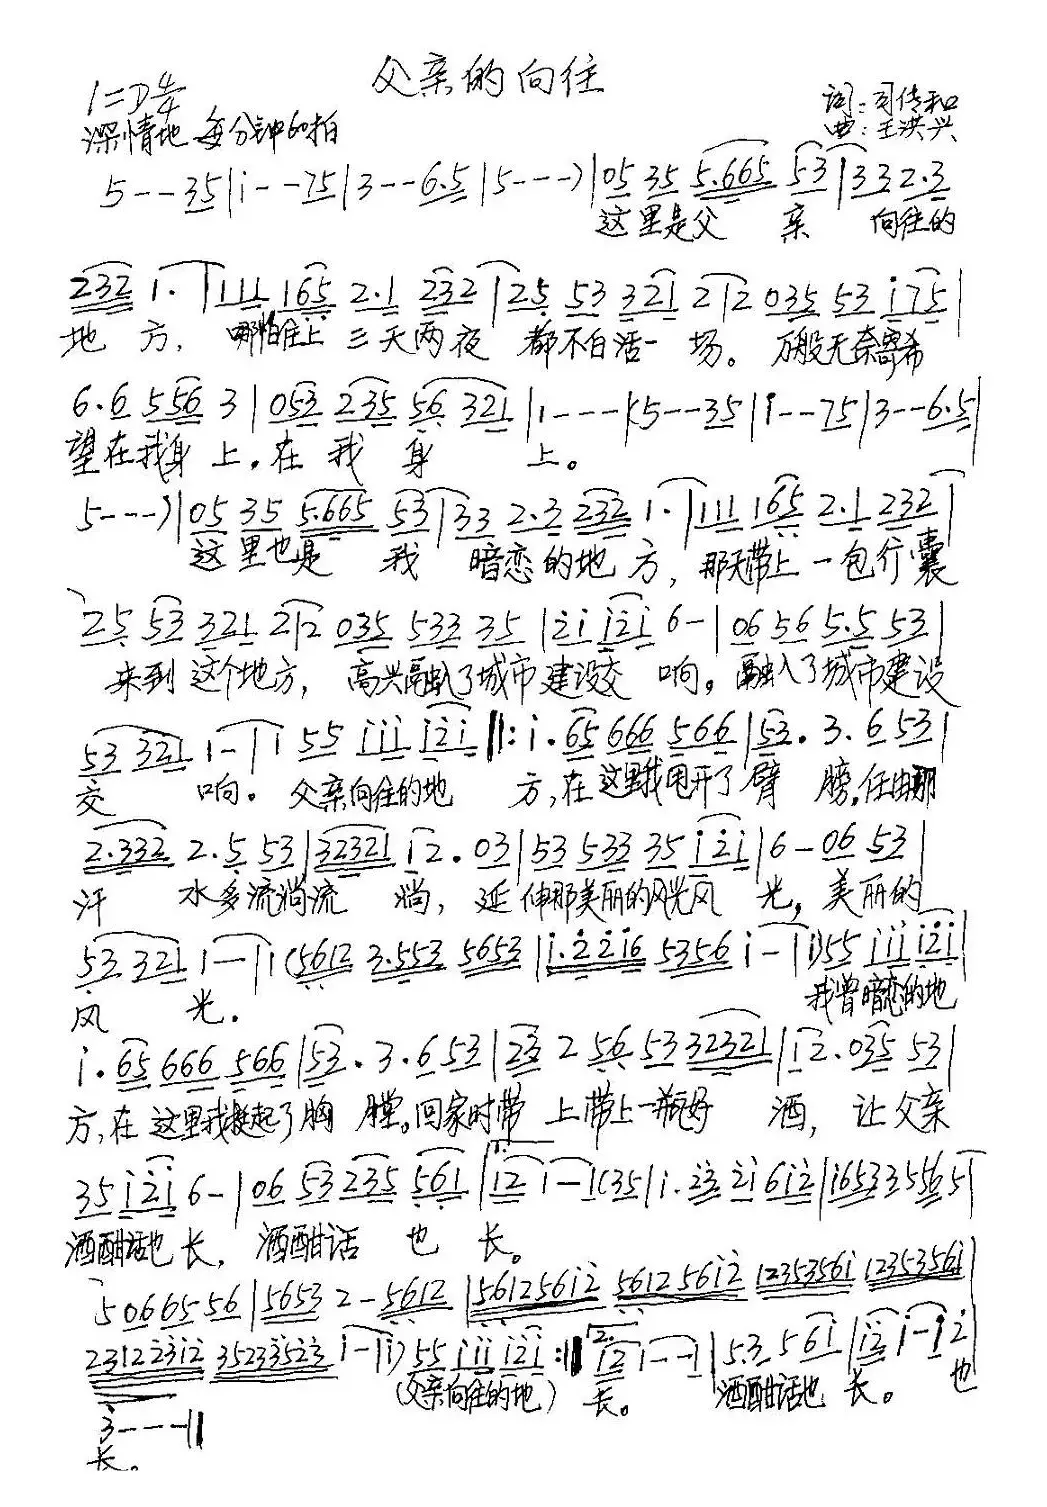 父亲的向往
1=D 4/4
词:司传和
深情地 每分钟60拍
曲:王洪兴
5---35|i--75|3---6.5|5---)|05 35 5.665 53|33 2.3
这里是父 亲 向往的
232 1.|111 165 2.1 232|25 53 321 2|2 035 53 i75|
地 方, 哪怕住上 三天两夜 都不白活一 场。 万般无奈寄希
6.6 556 3|053 235 56 321|1----|(5---35|i--75|3--6.5|
望在我身 上。在 我 身 上。
5---)|05 35 5.665 53|33 2.3 232 1.|111 165 2.1 232|
这里也是 我 暗恋的地 方, 那天带上 一包行囊
25 53 321 2|2 035 533 35|2i i2i 6-|06 56 5.5 53|
来到 这个地方, 高兴融入了城市建设交 响。融入了城市建设
53 321 1-|1 55 iii i2i||:i.65 666 566|53.3.6 53|
交 响。 父亲向往的地 方,在 这里我甩开了臂 膀。任由那
2.332 2.5 53|32321 i2.03|53 533 35 i2i|6-06 53|
汗 水多流淌流 淌, 延 伸那美丽的风光风 光。美丽的
53 321 1--|1(5612 3.553 5653|i.22i6 5356 i-|i)55 iii i2i|
风 光。 我曾暗恋的地
i.65 666 566|53.3.6 53|23 2 56 53 32321|i2.035 53|
方,在 这里我挺起了胸 膛。回家时带 上带上一瓶好 酒, 让父亲
35 i2i 6-|06 53 235 561|i2 i--|(35|i.23 2i 6i2|i6533556 5|
酒酣话也 长, 酒酣话 也 长。
5 0665 56|5653 2-5612|561256i2 561256i2 1235356i 1235356i|
231223i2 35233523 i-|i)55 iii i2i:||2. i2 i---|5.3 5 6i|i2 i-i 2
(父亲向往的地) 长。 酒酣话也 长。 也
3----||
长。